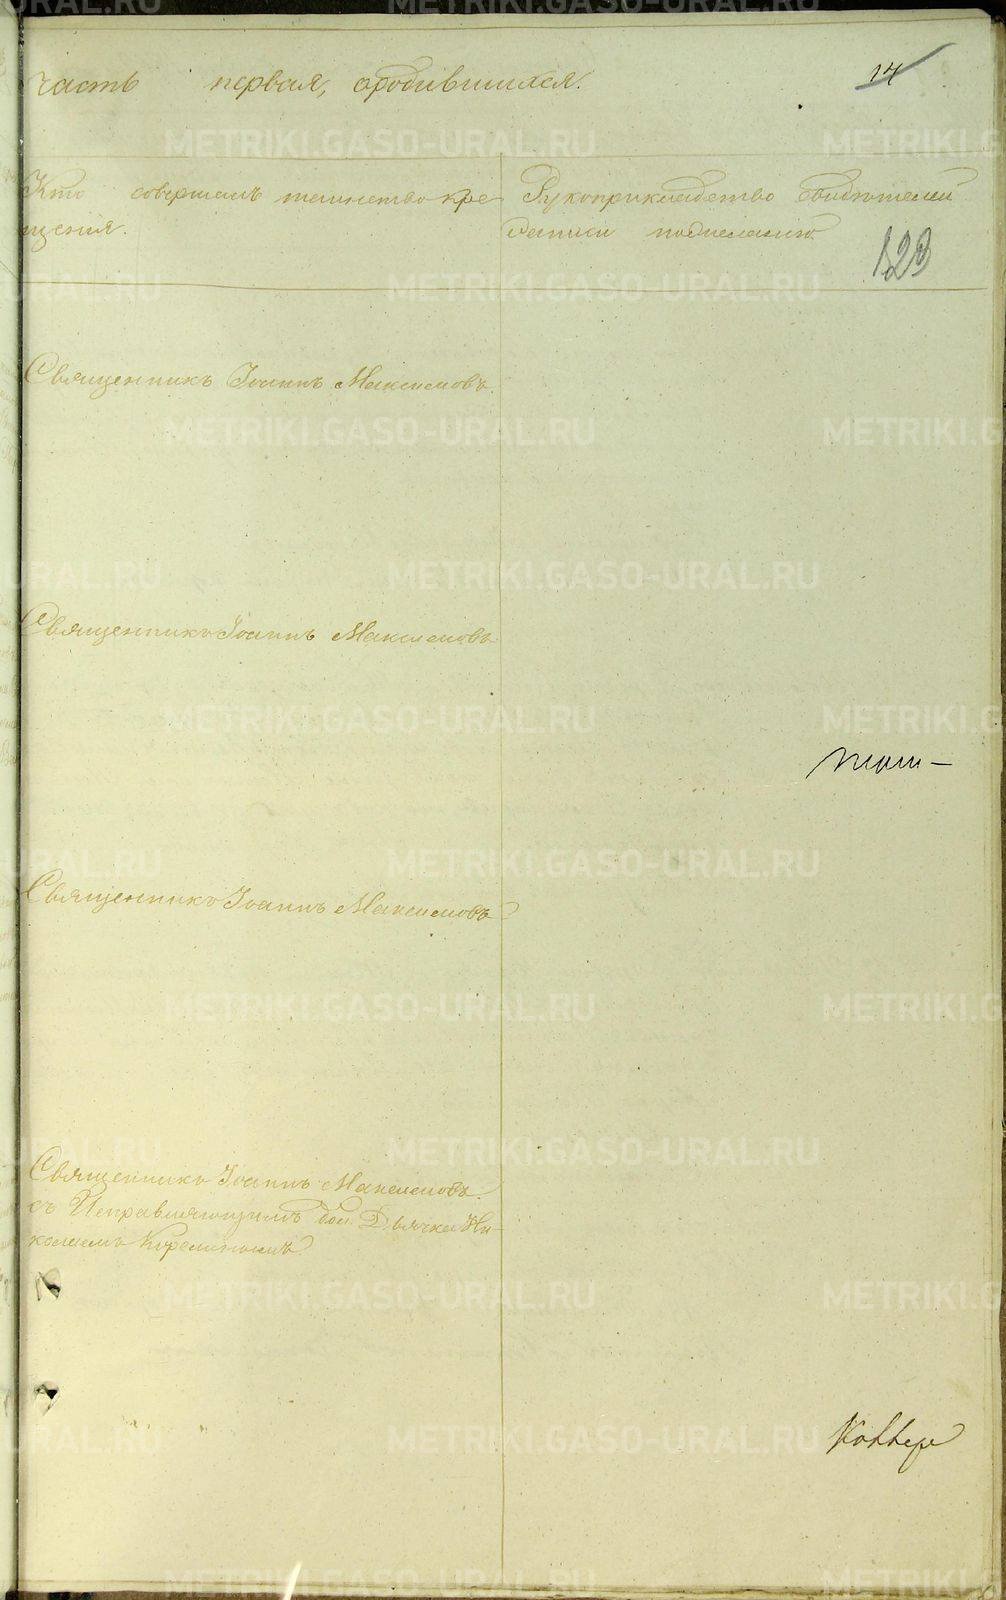 часть первая, ородившихся.
14
Кто совершалъ таинство кре
щения.
Рукоприкладство свидѣтелей
записи пожеланию
123
Священникъ Іоаннъ Максимовъ
Священникъ Іоаннъ Максимовъ
Священникъ Іоаннъ Максимовъ
Священникъ Іоаннъ Максимовъ
съ Исправляющимъ дол. Дьячка Ни-
колаемъ
METRIKI.GASO-URAL.RU